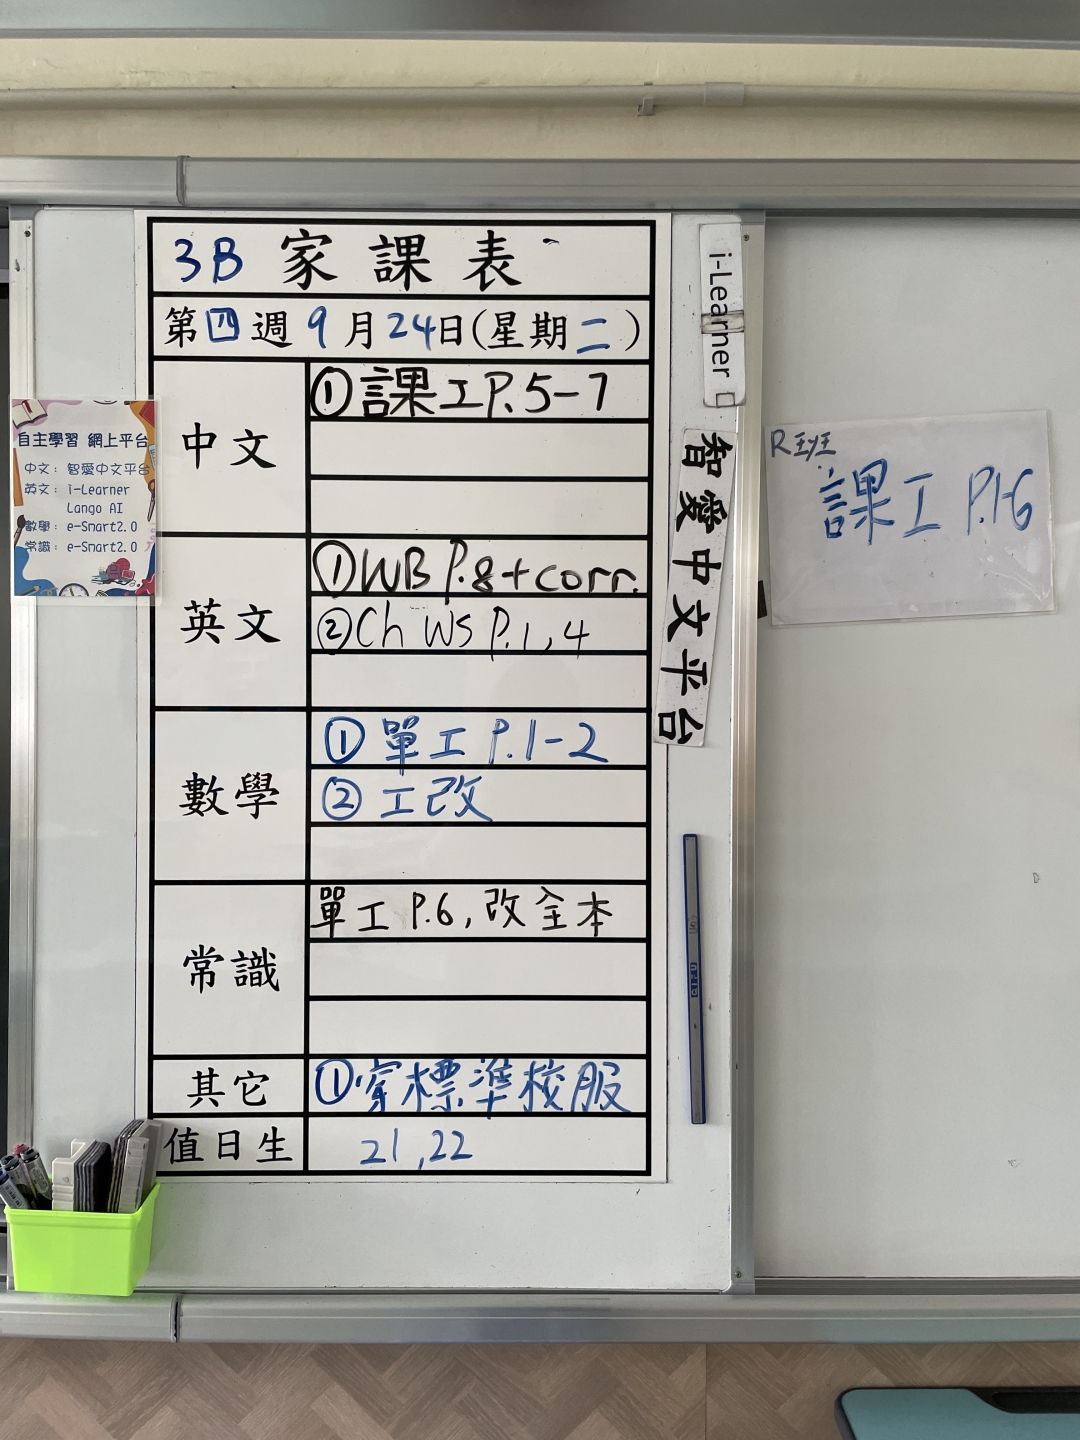 3B 家課表
第四週9月24日(星期二)
中文
①課工P.5-7
英文
①WB P.8+corr.
②Ch WS P.1,4
數學
①單工P.1-2
②工改
常識
單工P.6,改全本
其它
①穿標準校服
值日生
21,22
自主學習 網上平台
中文: 智愛中文平台
英文: i-Learner
Lango AI
數學: e-Smart2.0
常識: e-Smart2.0
i-Learner
智愛中文平台
課工 P.1-6